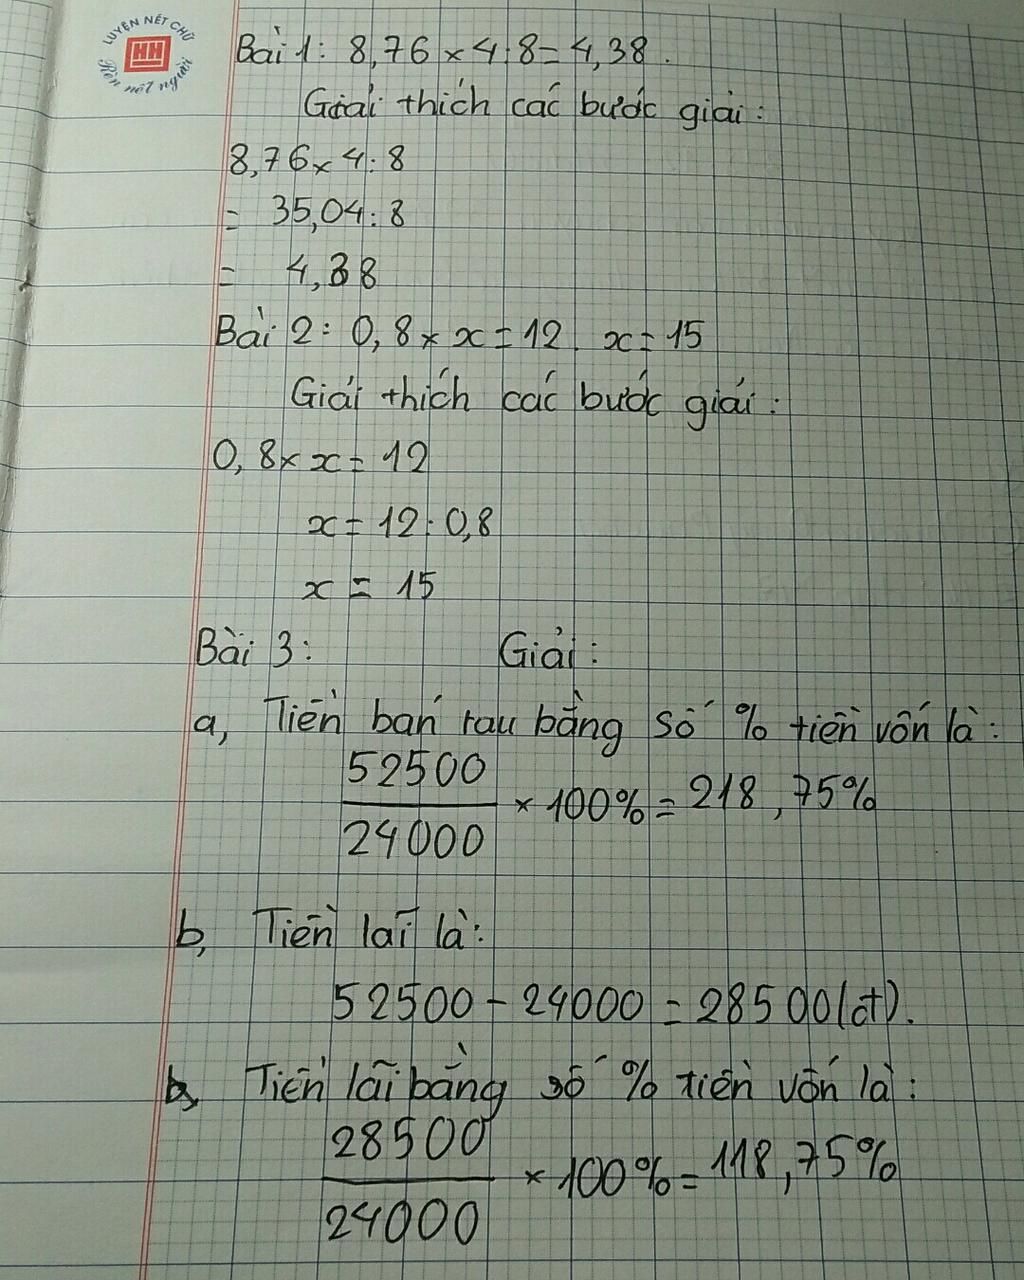 LUYỆN NÉT CHỮ
HH
Rèn nết người
Bài 1: 8,76 x 4:8 = 4,38.
Giải thích các bước giải:
8,76 x 4:8
= 35,04:8
= 4,38
Bài 2: 0,8 x x = 12. x = 15
Giải thích các bước giải:
0,8 x x = 12
x = 12:0,8
x = 15
Bài 3: Giải:
a, Tiền bán rau bằng số % tiền vốn là:
52500/24000 x 100% = 218,75%
b, Tiền lãi là:
52500 - 24000 = 28500(đ).
Tiền lãi bằng số % tiền vốn là:
28500/24000 x 100% = 118,75%